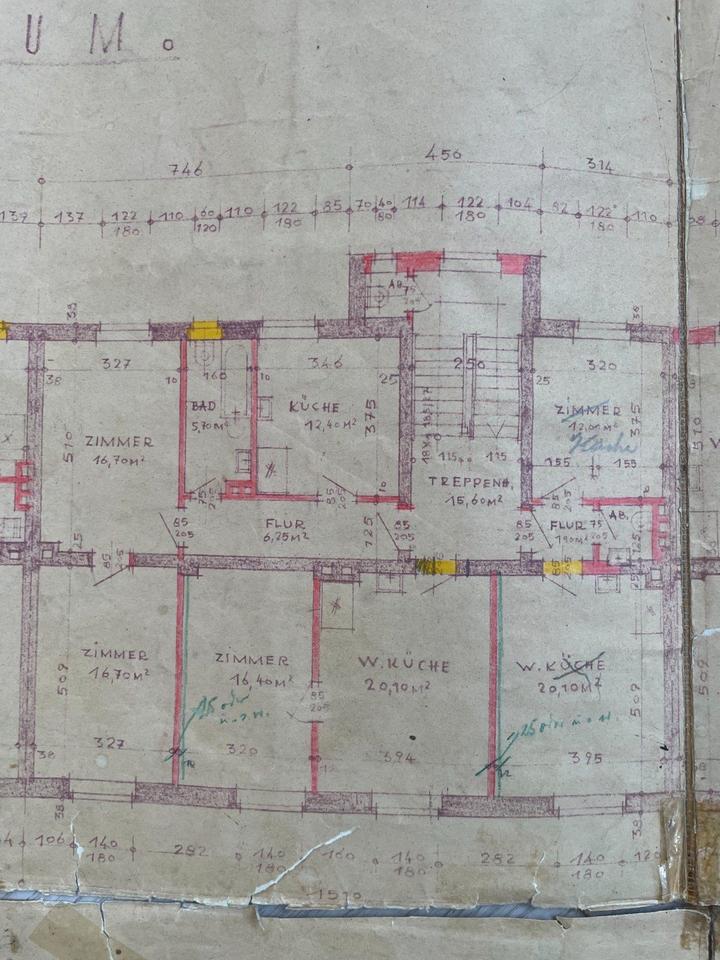 UM.
746 450 314
137 122 110 60 110 122 85 70 40 114 122 104 82 122 110
180 120 180 80 180 180
38
AB.
75
205
327 160 346 250 320
38 10 10 25 25
BAD
5,70 m²
KÜCHE
12,40 m²
375
ZIMMER
12,00 m²
Küche
375
510
ZIMMER
16,70 m²
115 115
155 155
TREPPENH.
15,60 m²
75
205
85
205
85
205
FLUR
6,25 m²
125
85
205
85
205
85
205
FLUR
1,90 m²
75
205
AB.
125
25
85
205
ZIMMER
16,70 m²
ZIMMER
16,40 m²
W.KÜCHE
20,10 m²
W.KÜCHE
20,10 m²
509
509
85
205
327 320 394 395
38
12
38
38
106 140 282 140 160 140 282 140
180 180 180 180
1510